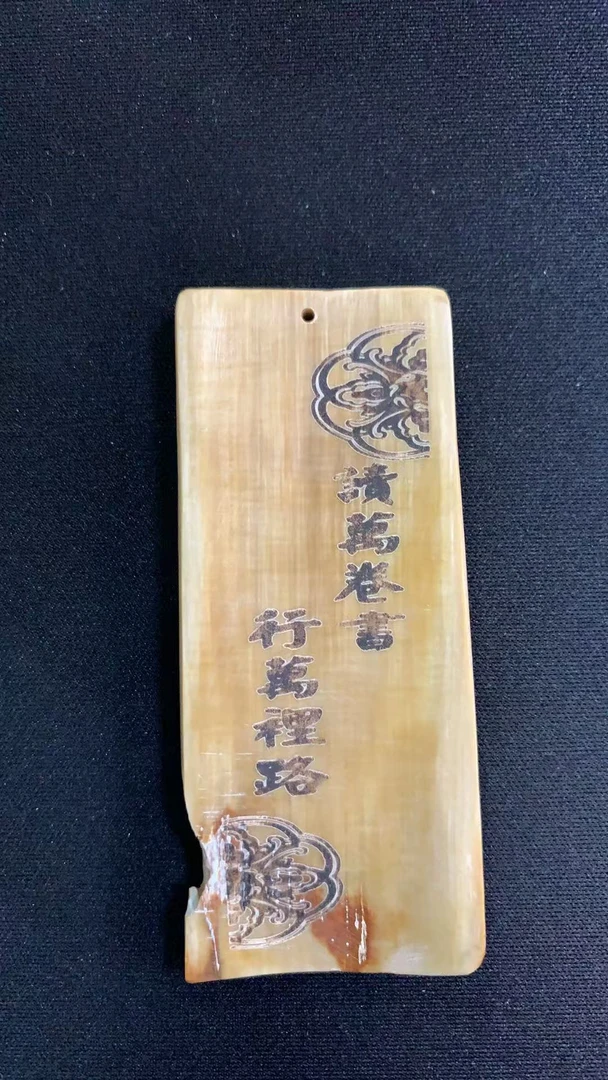 讀萬卷書
行萬裡路